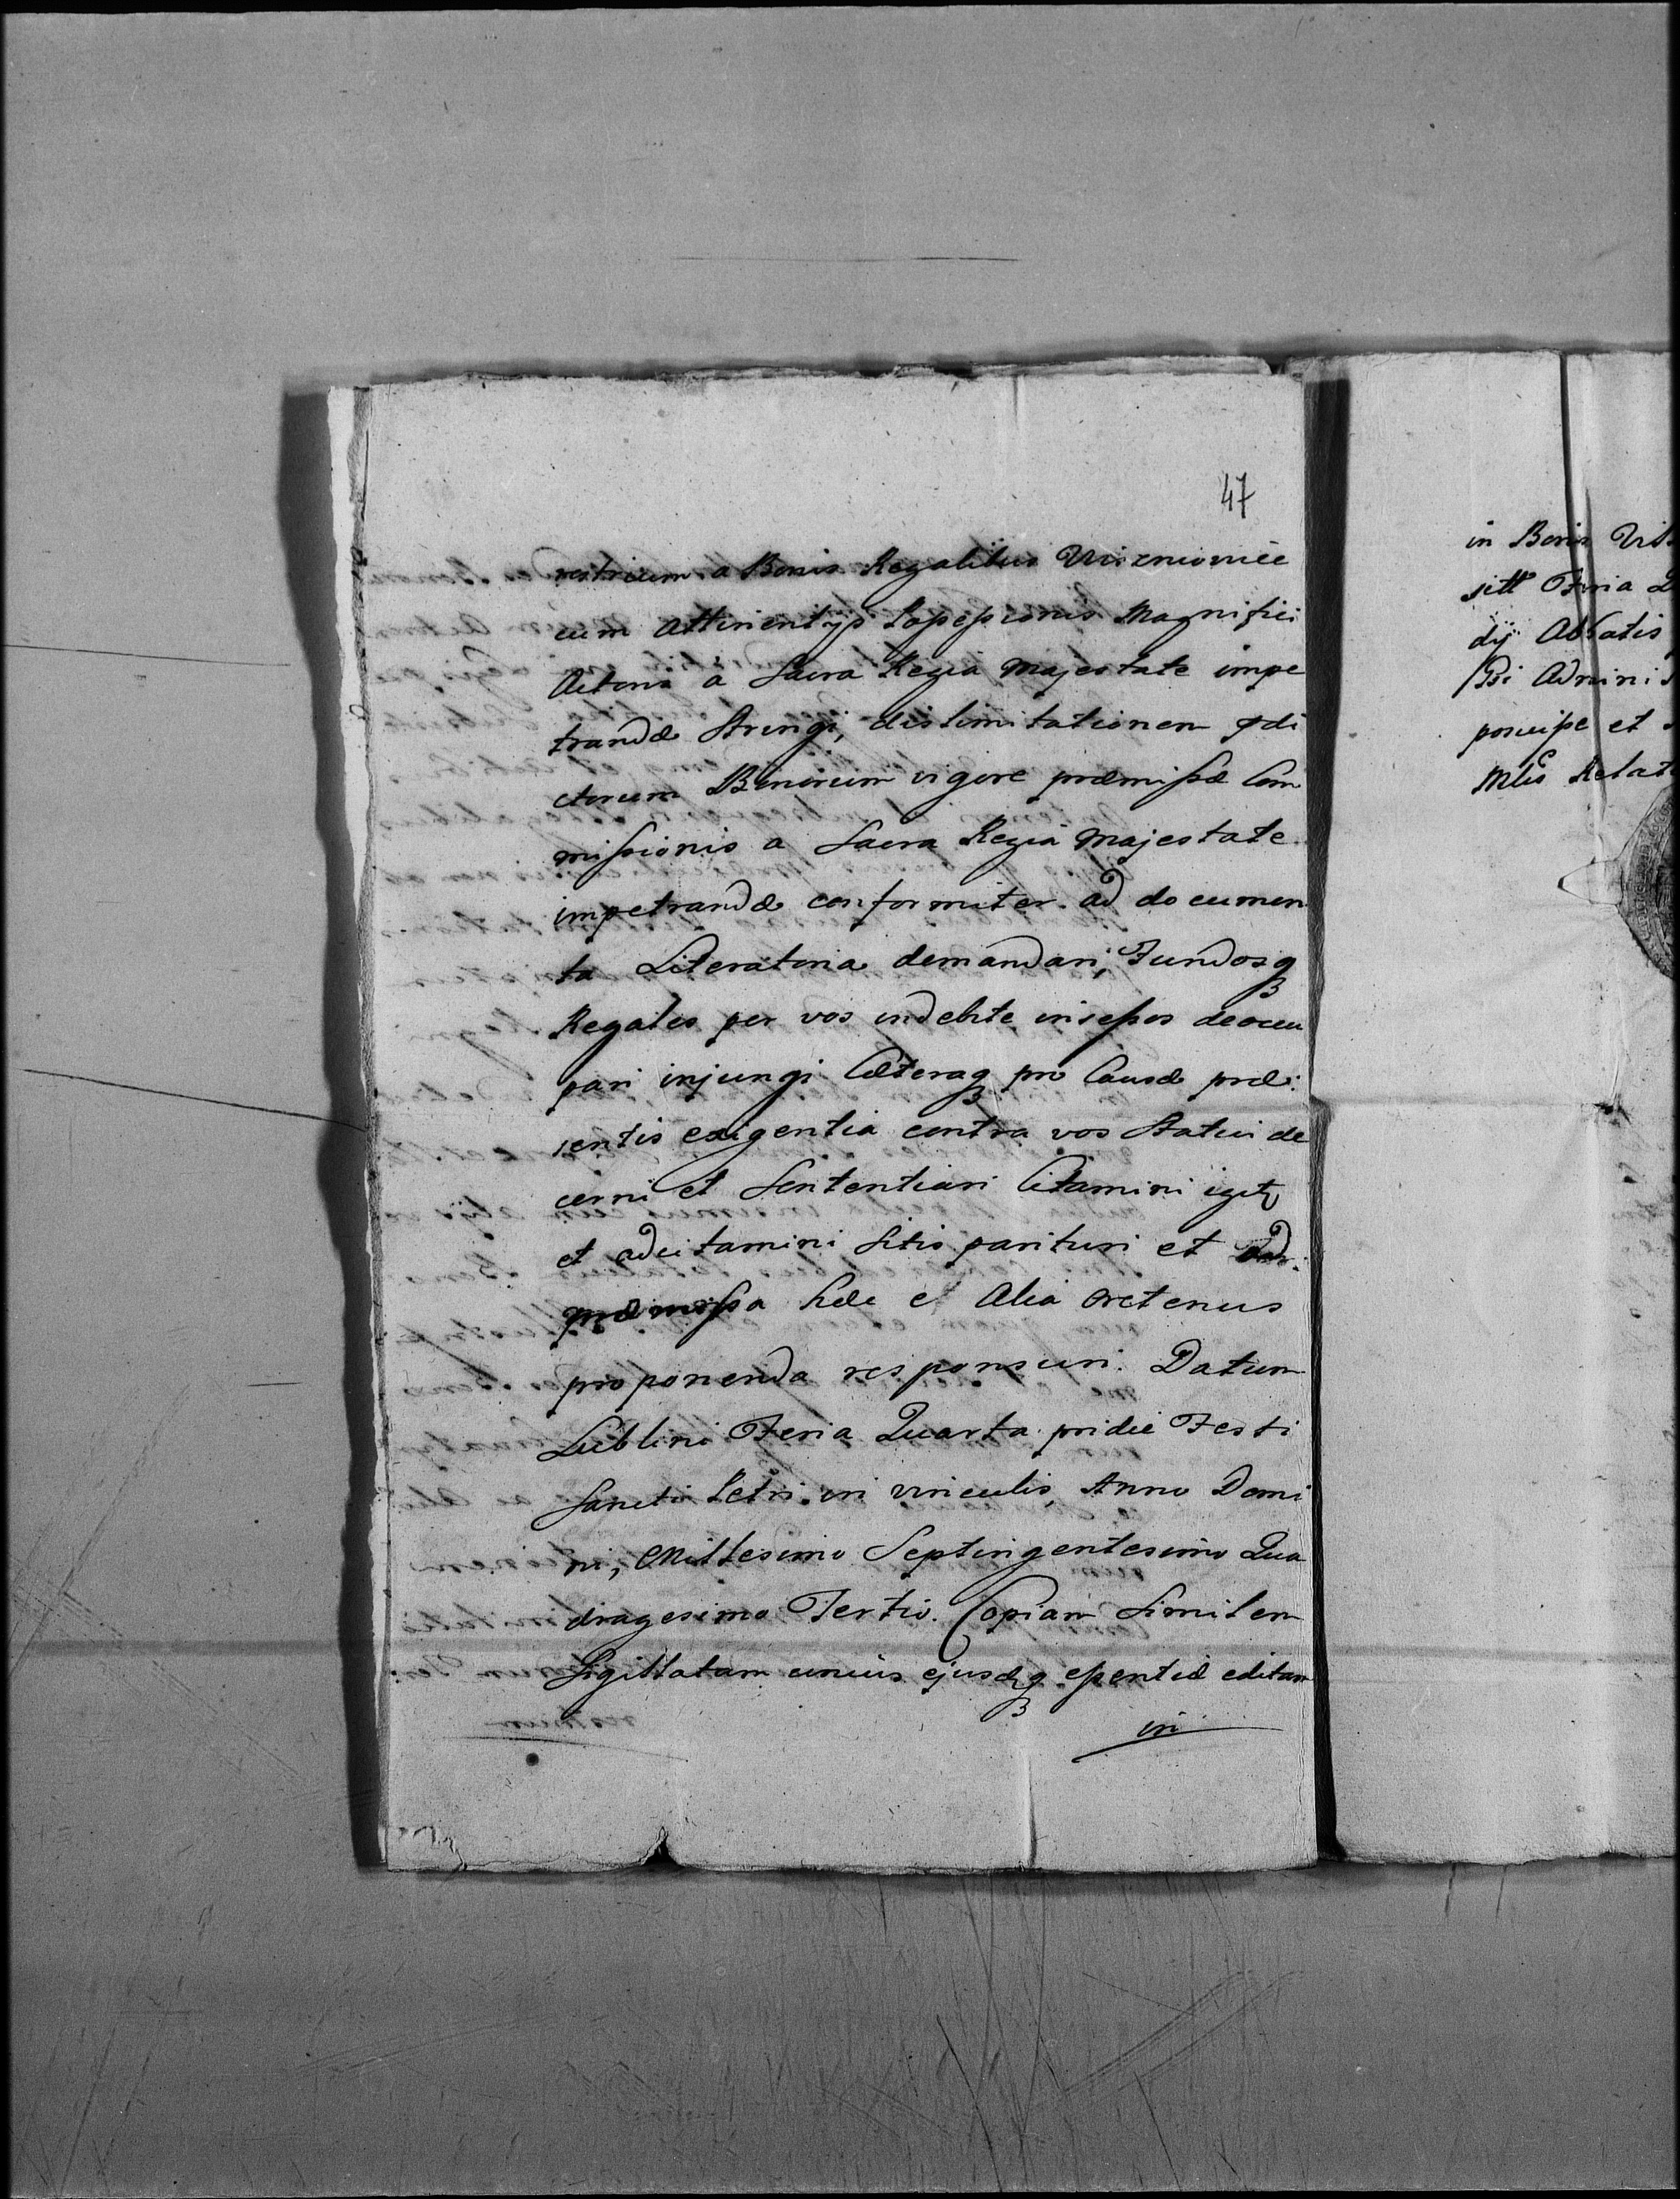 47
vestrium a Bonis Regalibus Wiszniowiec
cum Attinentijs Possessionis Magnifici
Actoris a Sacra Regia Majestate impe
trandæ stringi, dislimitationem prædi
ctorum Bonorum vigore præmissæ Com
missionis a Sacra Regia Majestate
impetrandæ conformiter ad documen
ta Literatoria demandari, Fundosq
Regales per vos indebite insessos deoccu
pari injungi Cæteraq pro Causæ præ:
sentis exigentia contra vos Statui de
cerni et Sententiari Citamini igitr
et adcitamini sitis parituri et ad
præmissa hæc et Alia oretenus
proponenda responsuri. Datum
Lublini Feria Quarta pridie Festi
Sancti Petri in vinculis, Anno Domi
ni, Millesimo Septingentesimo Qua
dragesimo Tertio. Copiam Similem
Sigillatam unius ejusdemq essentiæ editam
in
in Bonis
sitt Feria
dij Abbatis
Adminis
posuisse et
Relat